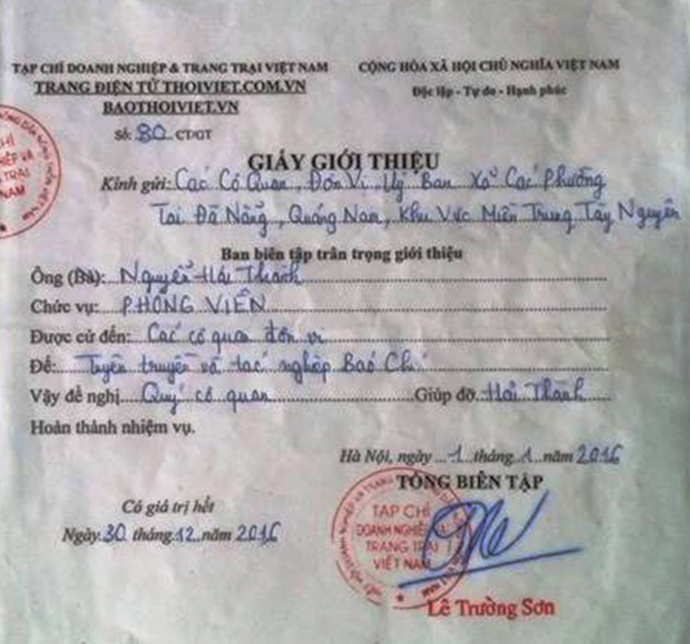 TẠP CHÍ DOANH NGHIỆP & TRANG TRẠI VIỆT NAM
TRANG ĐIỆN TỬ THOIVIET.COM.VN
BAOTHOIVIET.VN
Số: 80 CT/GT
CỘNG HÒA XÃ HỘI CHỦ NGHĨA VIỆT NAM
Độc lập - Tự do - Hạnh phúc
GIẤY GIỚI THIỆU
Kính gửi: Các Cơ Quan, Đơn Vị, Uỷ Ban Xã Các Phường
Tại Đã Nẵng, Quảng Nam, Khu Vực Miền Trung Tây Nguyên
Ban biên tập trân trọng giới thiệu
Ông (Bà): Nguyễn Hải Thành
Chức vụ: PHÓNG VIÊN
Được cử đến: Các cơ quan đơn vị
Để: Tuyên truyền và tác nghiệp Báo Chí
Vậy đề nghị Quý cơ quan Giúp đỡ: Hải Thành
Hoàn thành nhiệm vụ.
Hà Nội, ngày 1 tháng 1 năm 2016
TỔNG BIÊN TẬP
Có giá trị hết
Ngày 30 tháng 12 năm 2016
TẠP CHÍ
DOANH NGHIỆP VÀ
TRANG TRẠI
VIỆT NAM
Lê Trường Sơn